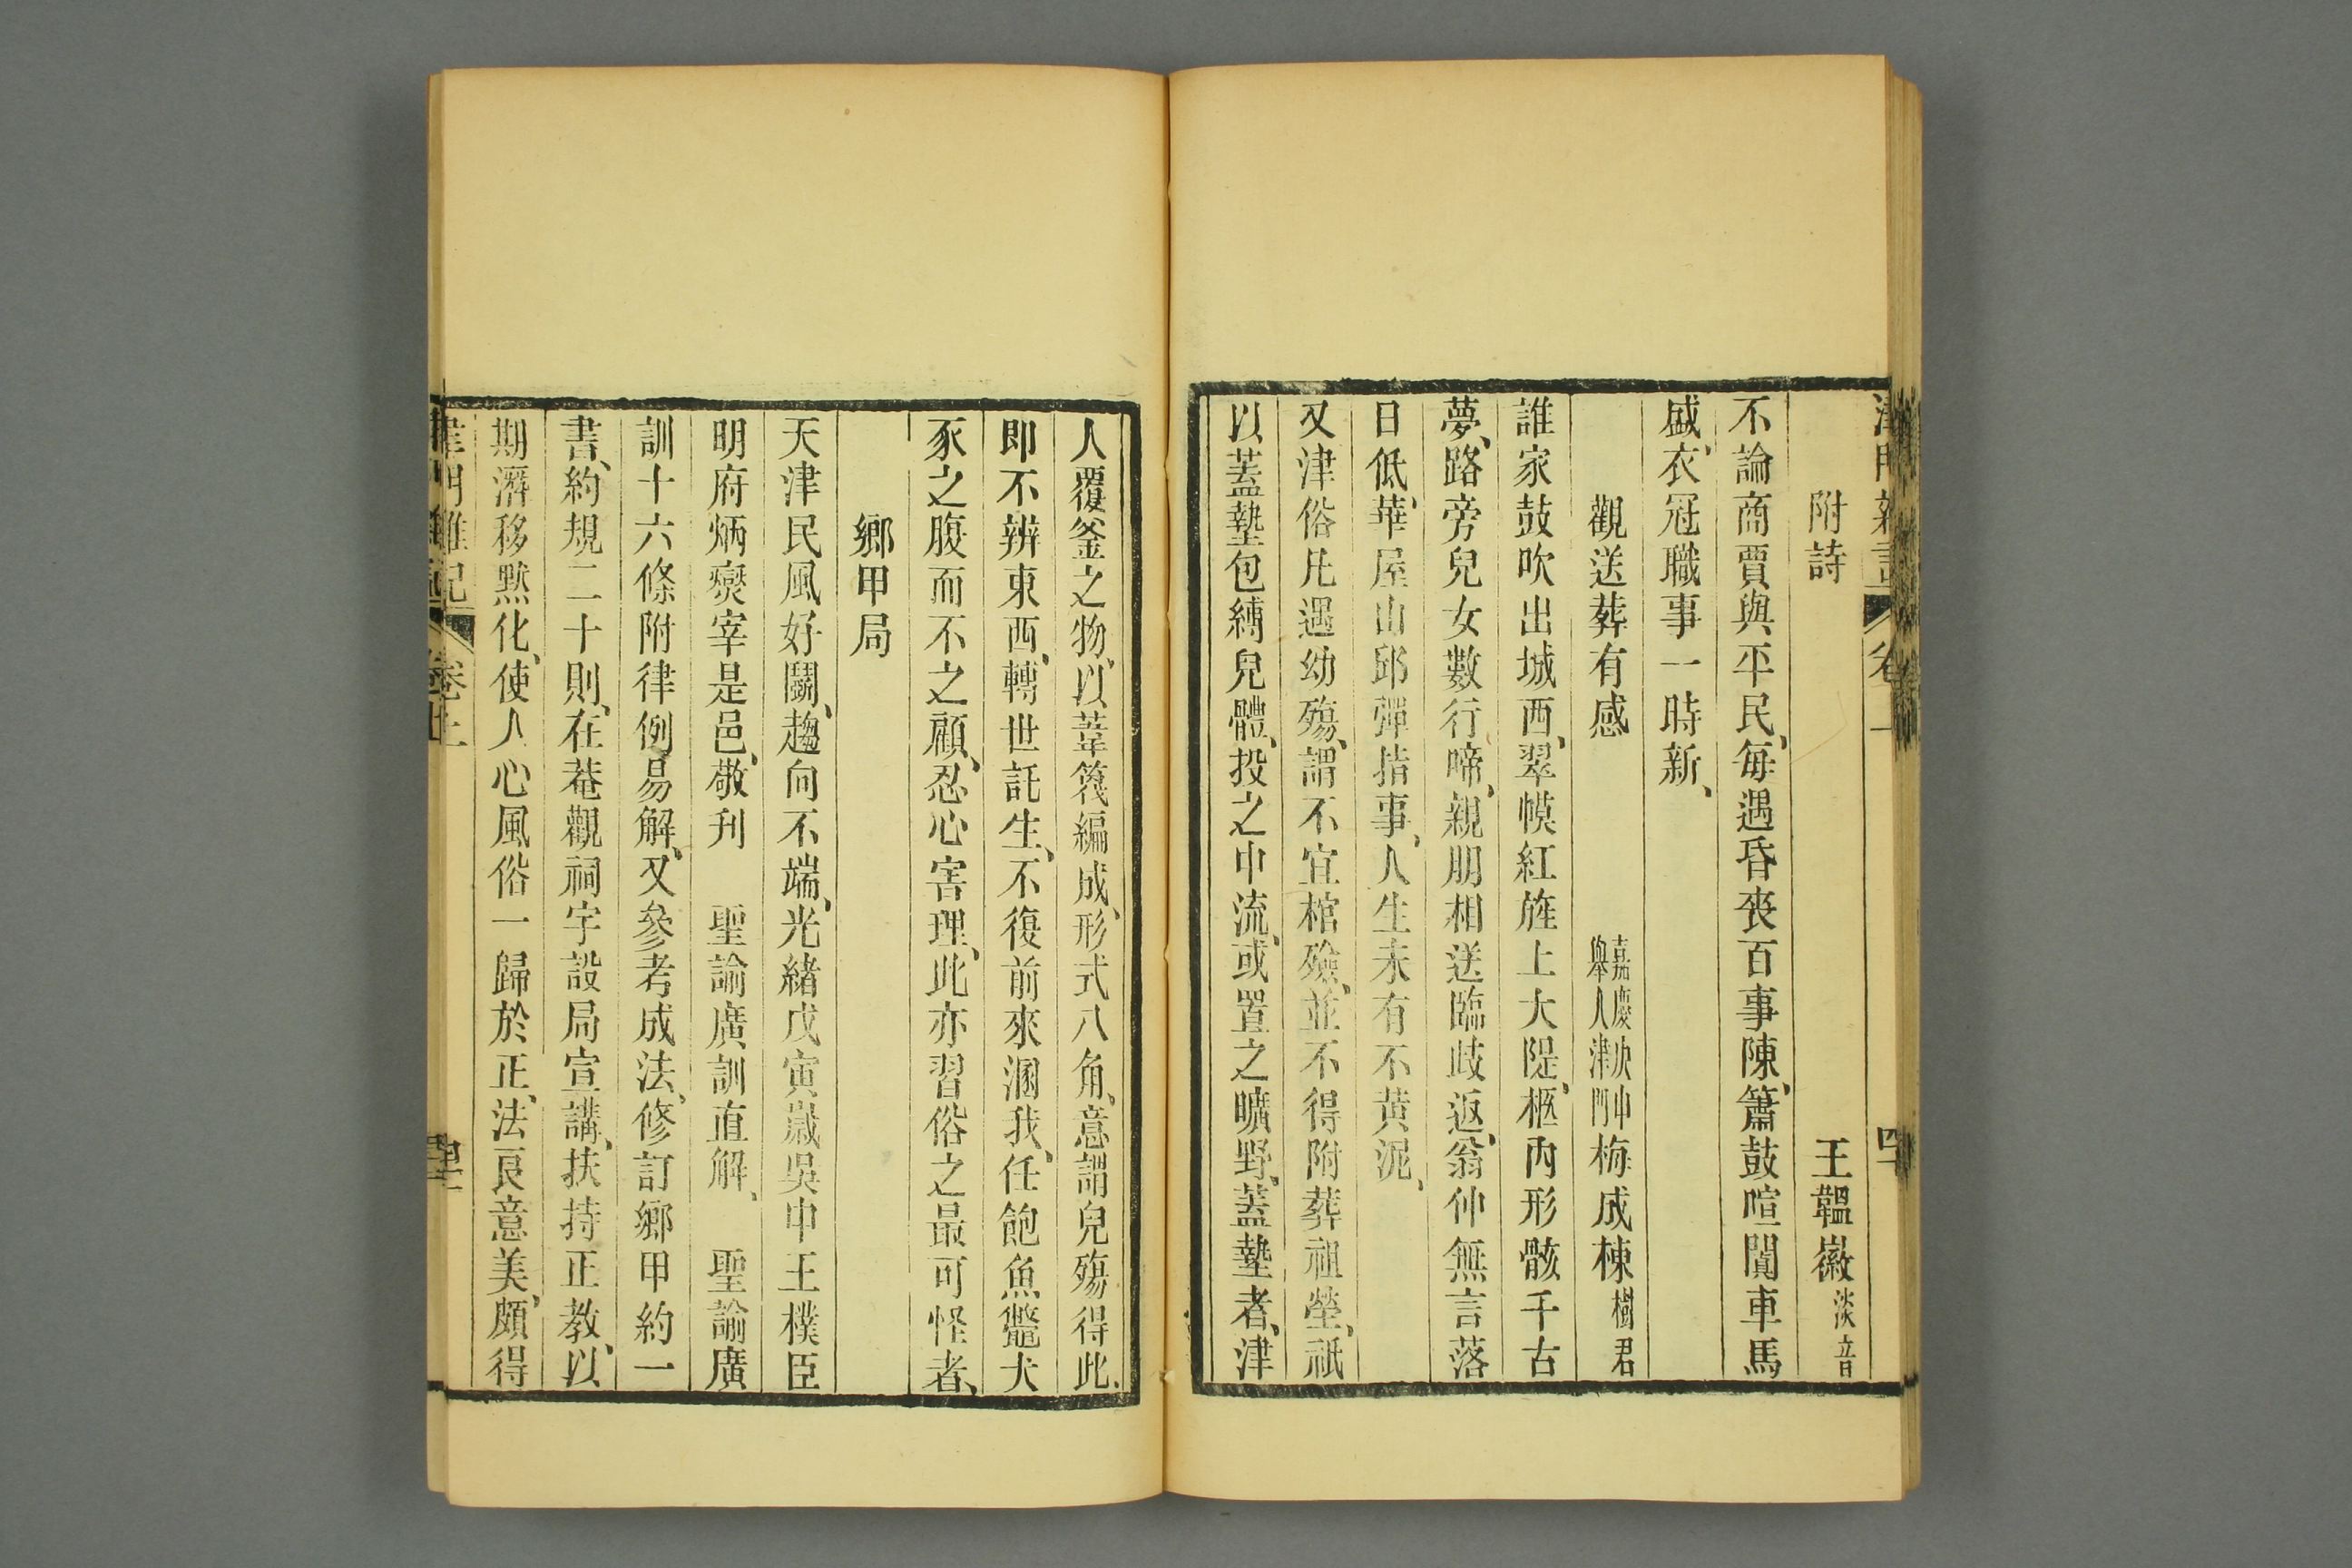 附詩 王韞徽淡音
不論商賈與平民、每遇昏喪百事陳、簫鼓喧闐車馬
盛、衣冠職事一時新、
觀送葬有感 嘉慶次中舉人津門梅成棟樹君
誰家鼓吹出城西、翠幙紅旌上大隄、柩內形骸千古
夢、路旁兒女數行啼、親朋相送臨歧返、翁仲無言落
日低、華屋山邱彈指事、人生未有不黃泥、
又津俗凡遇幼殤、謂不宜棺殮、並不得附葬祖塋、祇
以蓋墊包縛兒體、投之中流、或置之曠野、蓋墊者、津
人覆釜之物、以葦篾編成、形式八角、意謂兒殤得此、
即不辨東西、轉世託生、不復前來溷我、任飽魚鼈犬
豕之腹而不之顧、忍心害理、此亦習俗之最可怪者、
鄉甲局
天津民風好鬭、趨向不端、光緒戊寅歲吳中王樸臣
明府炳燮宰是邑、敬刋 聖諭廣訓直解、 聖諭廣
訓十六條附律例易解、又參考成法、修訂鄉甲約一
書、約規二十則、在菴觀祠宇設局宣講、扶持正教、以
期潛移黙化、使人心風俗一歸於正、法良意美、頗得
津門雜記 卷上